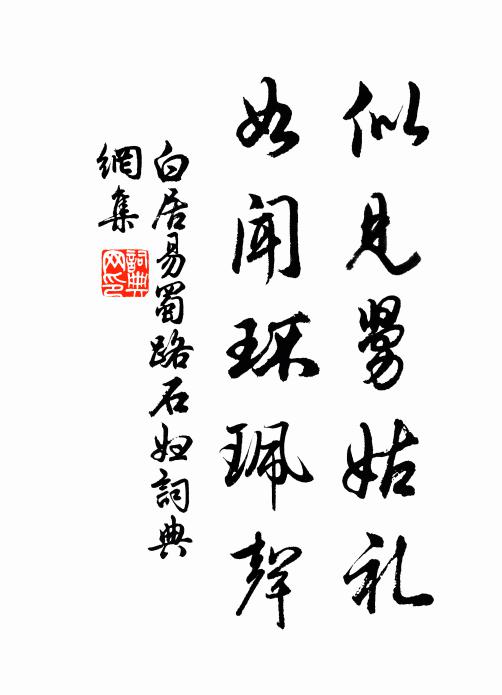 似见舅姑礼
如闻环珮聲
白居易蜀路石妇詞典
網集
詞典
网印